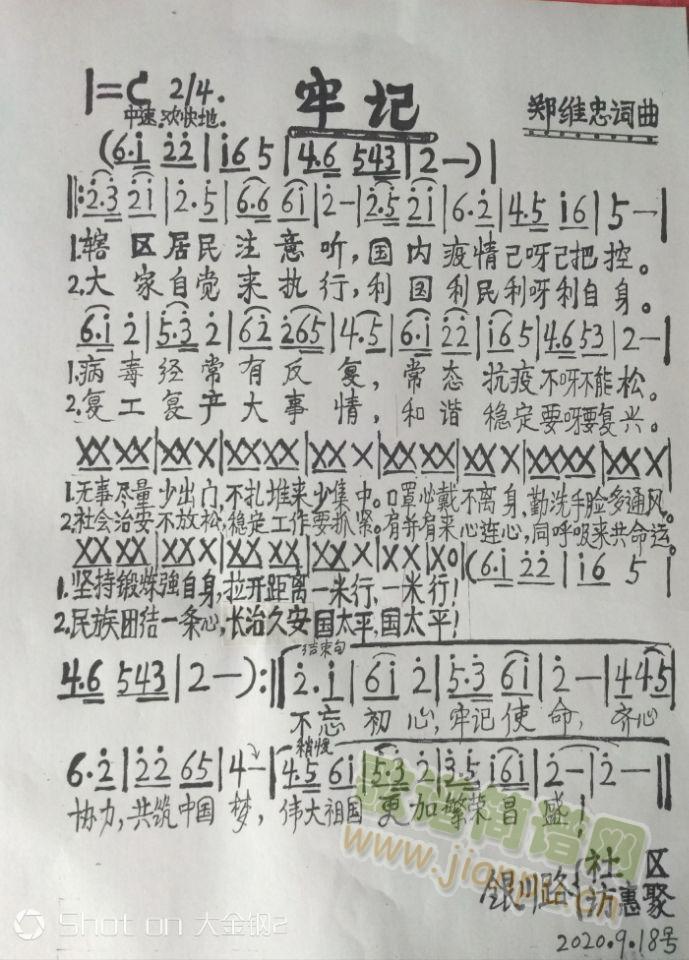 1=C 2/4.
牢记
中速.欢快地.
郑维忠词曲
(6.i 22|i65|4.6 543|2—)|
||:2.3 21|2.5|6.6 6i|2—|2.5 21|6.2|4.5 i6|5—|
1.辖区居民注意听,国内疫情已呀已把控。
2.大家自觉来执行,利国利民利呀利自身。
6.i 2|5.3 2|62 265|4.5|6.i 22|i65|4.6 53|2—|
1.病毒经常有反复,常态抗疫不呀不能松。
2.复工复产大事情,和谐稳定要呀要复兴。
XX XX|XX X|XX XX|XX X|XX XX|XX X|XXXX|XX X|
1.无事尽量少出门,不扎堆来少集中。口罩必戴不离身,勤洗手脸多通风。
2.社会治安不放松,稳定工作要抓紧。肩并肩来心连心,同呼吸来共命运。
XX XX|XX X|XX XX|XX X|XX X|XX X0|(6.i 22|i6 5|
1.坚持锻炼强自身,拉开距离一米行,一米行!
2.民族团结一条心,长治久安国太平,国太平!
结束句
4.6 543|2—):||2.i|6i 2|5.3 6i|2—|445|
不忘初心,牢记使命,齐心
稍慢
6.2|22 65|4—|4.5 6i|5.3 2|3.5 i6i|2—|2—||
协力,共筑中国梦,伟大祖国更加繁荣昌盛!
www.jianpu.cn
银川路{社区
访惠聚
2020.9.18号
Shot on 大金钢2